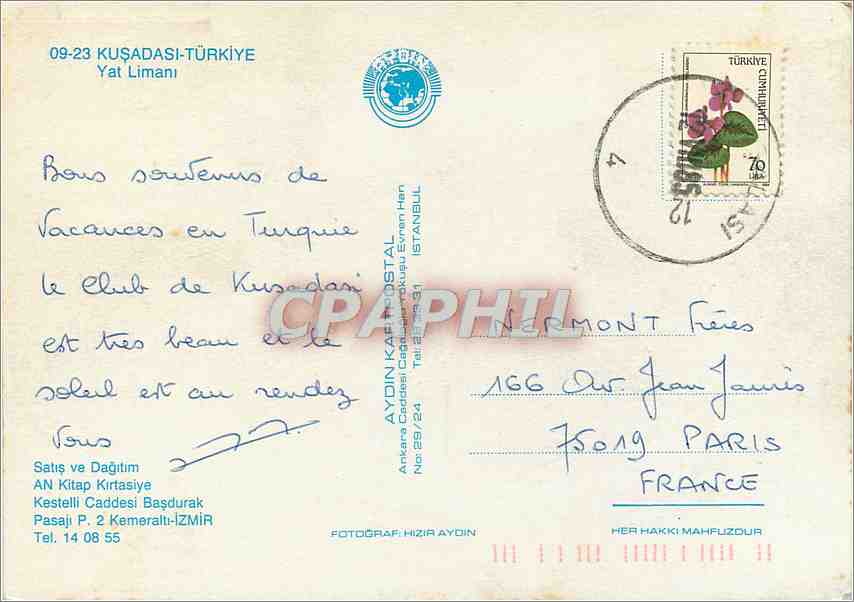 09-23 KUŞADASI-TÜRKİYE
Yat Limanı
AYDIN
TÜRKİYE CUMHURİYETİ
70
LİRA
12
4
ASI
Bons souvenirs de
Vacances en Turquie
le Club de Kusadasi
est très beau et le
soleil est au rendez
vous
Satış ve Dağıtım
AN Kitap Kırtasiye
Kestelli Caddesi Başdurak
Pasajı P. 2 Kemeraltı-İZMİR
Tel. 14 08 55
AYDIN KARTPOSTAL
Ankara Caddesi Cağaloğlu Yokuşu Evren Han
No: 29/24 Tel: 28 38 31 İSTANBUL
CPAPHIL
NERMONT Frères
166 Av. Jean Jaurès
75019 PARIS
FRANCE
FOTOĞRAF: HIZIR AYDIN
HER HAKKI MAHFUZDUR